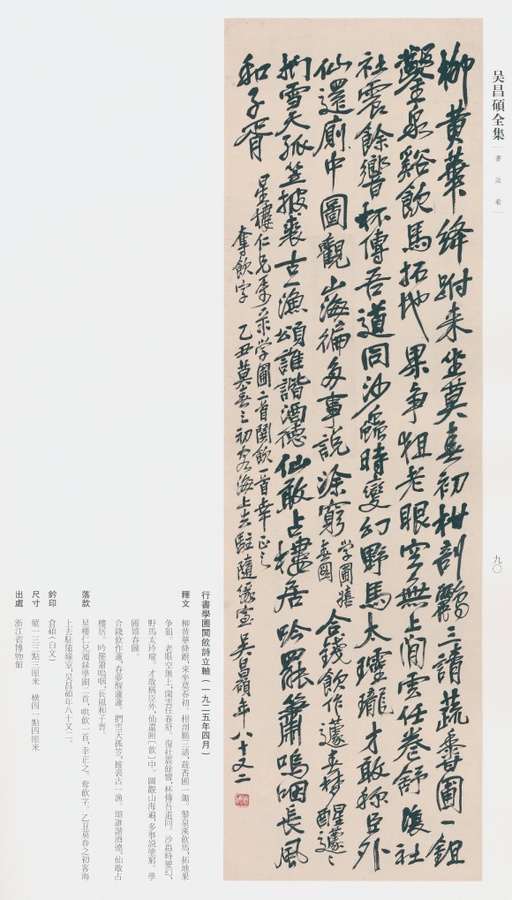 吴昌碩全集
書法卷
九〇
柳黄華絳跗来坐莫春初柑剖鸝三請蔬香圃一鉏
鑿泉谿飲馬拓地果争狙老眼空無上閒雲任卷舒復社
社震餘響杯傳吾道同沙蟲時變幻野馬太瓏瓏才敢称臣外
仙還廁中圖觀山海徧多事説涂窮学圃禧春圖合錢飲作蘧春夢醒蘧〻
捫雪天孤笠披裘古一漁頌誰諧酒德仙敢占樓居吟罷簫嗚咽長風
和子胥 星樓仁兄属录学圃二首鬨飲一首幸正之
奪飲字 乙丑莫春之初客海上去駐隨缘室吴昌碩年八十又二
行書學圃鬨飲詩立軸(一九二五年四月)
釋文 柳黄華絳跗,來坐莫春初。柑剖鸝三請,蔬香圃一鉏。鑿泉溪飲馬,拓地果
争狙。老眼空無上,閑雲任卷舒。復社震餘響,杯傳吾道同。沙蟲時變幻,
野馬太玲瓏。才敢稱臣外,仙還厠(飲)中。圖觀山海遍,多事説塗窮。學
圃禧春圖。
合錢飲作蘧,春夢醒蘧蘧。捫雪天孤笠,披裘古一漁。頌誰諧酒德,仙敢占
樓居。吟罷簫嗚咽,長風和子胥。
落款 星樓仁兄屬録學圃二首,哄飲一首,幸正之。奪飲字。乙丑莫春之初客海
上去駐隨緣室,吴昌碩年八十又二。
鈐印 倉碩(白文)
尺寸 縱一三三點三厘米 横四一點四厘米
出處 浙江省博物館